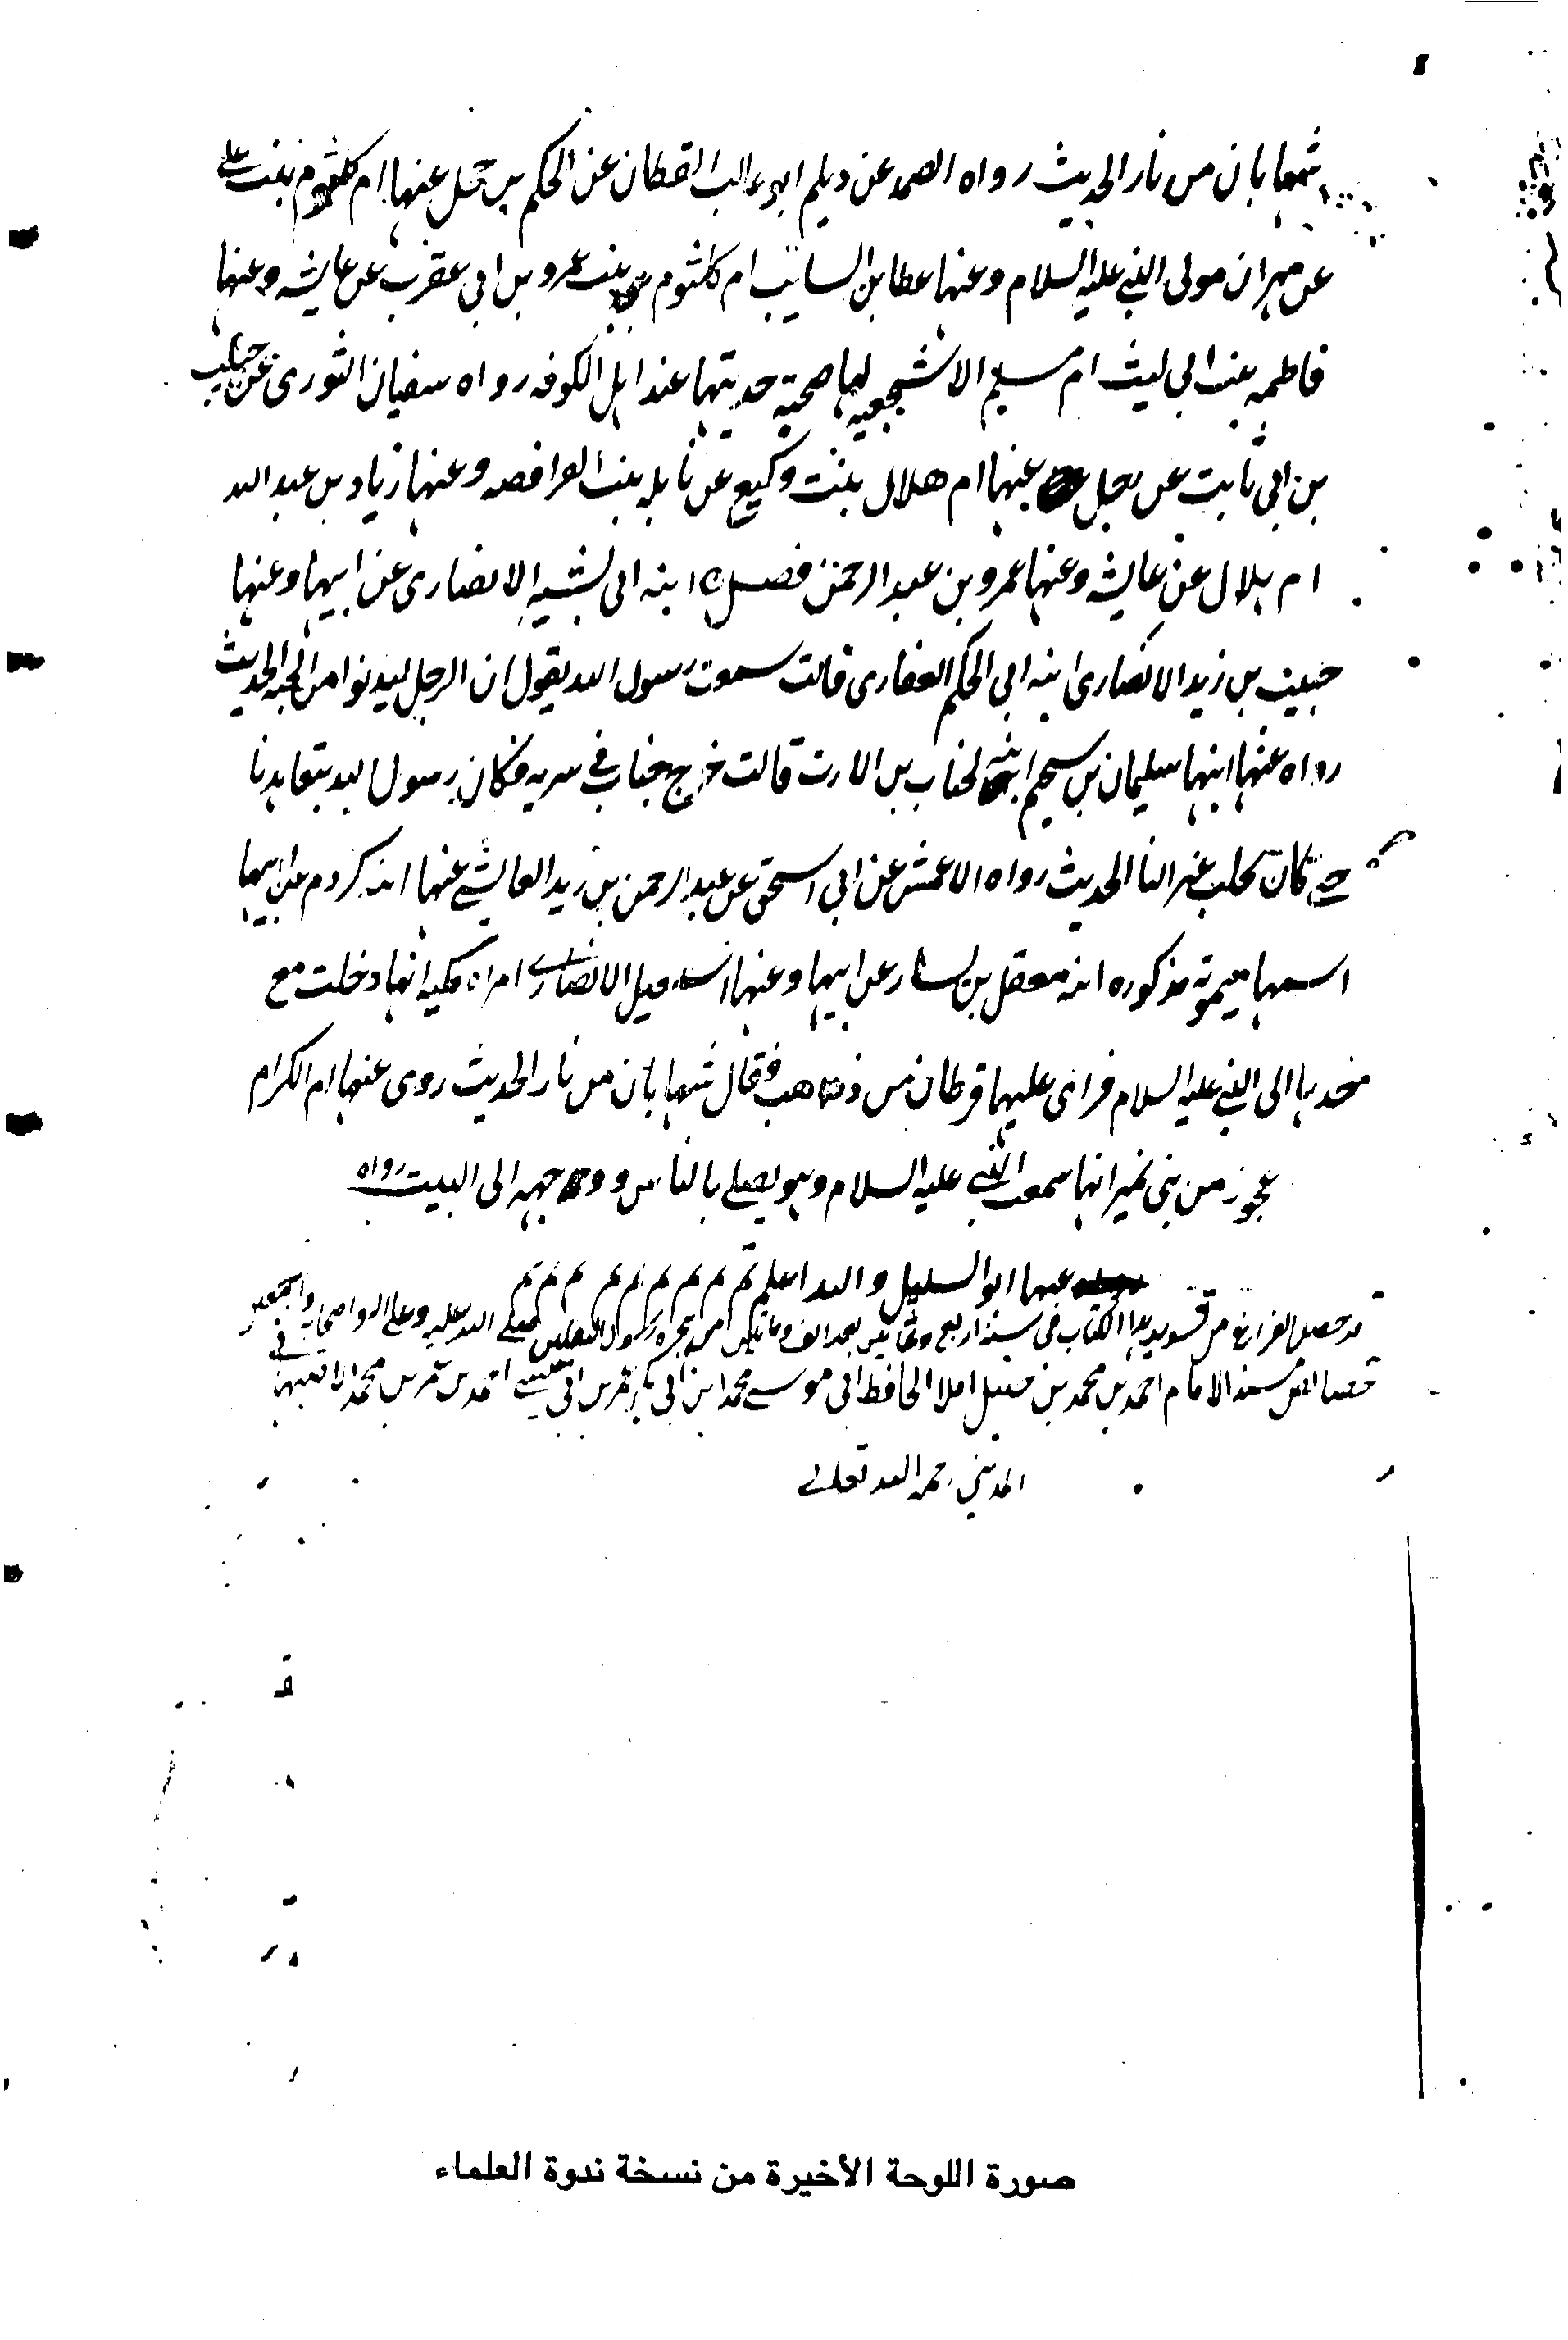 شهابان من نار الحديث رواه الصمد عن ديلم ابو غالب القطان عن الحكم بن جحل عنها ام كلثوم بنت علي
عن مهران مولى النبي عليه السلام وعنها عطا بن السايب ام كلثوم بنت عمرو بن ابي عقرب عن عايشه وعنها
فاطمه بنت ابي ليث ام سليم الاشجعيه لها صحبة حديثها عند اهل الكوفه رواه سفيان الثوري عن حبيب
بن ابي ثابت عن رجل عنها ام هلال بنت وكيع عن نايله بنت الفرافصه وعنها زياد بن عبد الله
ام بلال عن عايشه وعنها عمرو بن عبد الرحمن فصل ابنه ابي بشير الانصاري عن ابيها وعنها
حبيب بن زيد الانصاري ابنه ابي الحكم الغفاري قالت سمعت رسول الله يقول ان الرجل ليدنوا من الجنه الحديث
رواه عنها ابنها سليمان بن سحيم ابنة لخباب بن الارت قالت خرج خباب في سريه فكان رسول الله يتعاهدنا
حتى كان يحلب عنز النا الحديث رواه الاعمش عن ابي اسحق عن عبد الرحمن بن زيد العايشي عنها ابنه كردم عن ابيها
اسمها ميمونه مذكوره ابنه معقل بن يسار عن ابيها وعنها الانصاري امراه مكيه انها دخلت مع
الى النبي عليه السلام فراى عليها قرطان من ذهب فقال شهابان من نار الحديث روى عنها ام الكرام
عجوز من بني نمير انها سمعت النبي عليه السلام وهو يصلي بالناس ووجهه الى البيت رواه
عنها ابو السليل والله اعلم تم م م م م م م م م م
قد حصل الفراغ من تسويد هذا الكتاب في سنة اربع وثمانين بعد الف ومائتين من هجرة رسول الثقلين صلى الله عليه وعلى اله واصحابه اجمعين
مسند الامام احمد بن محمد بن حنبل املا الحافظ ابي موسى محمد ابن ابي بكر عمر بن ابي عيسى احمد بن عمر بن محمد الاصبهاني
المديني رحمه الله تعالى
صورة اللوحة الأخيرة من نسخة ندوة العلماء